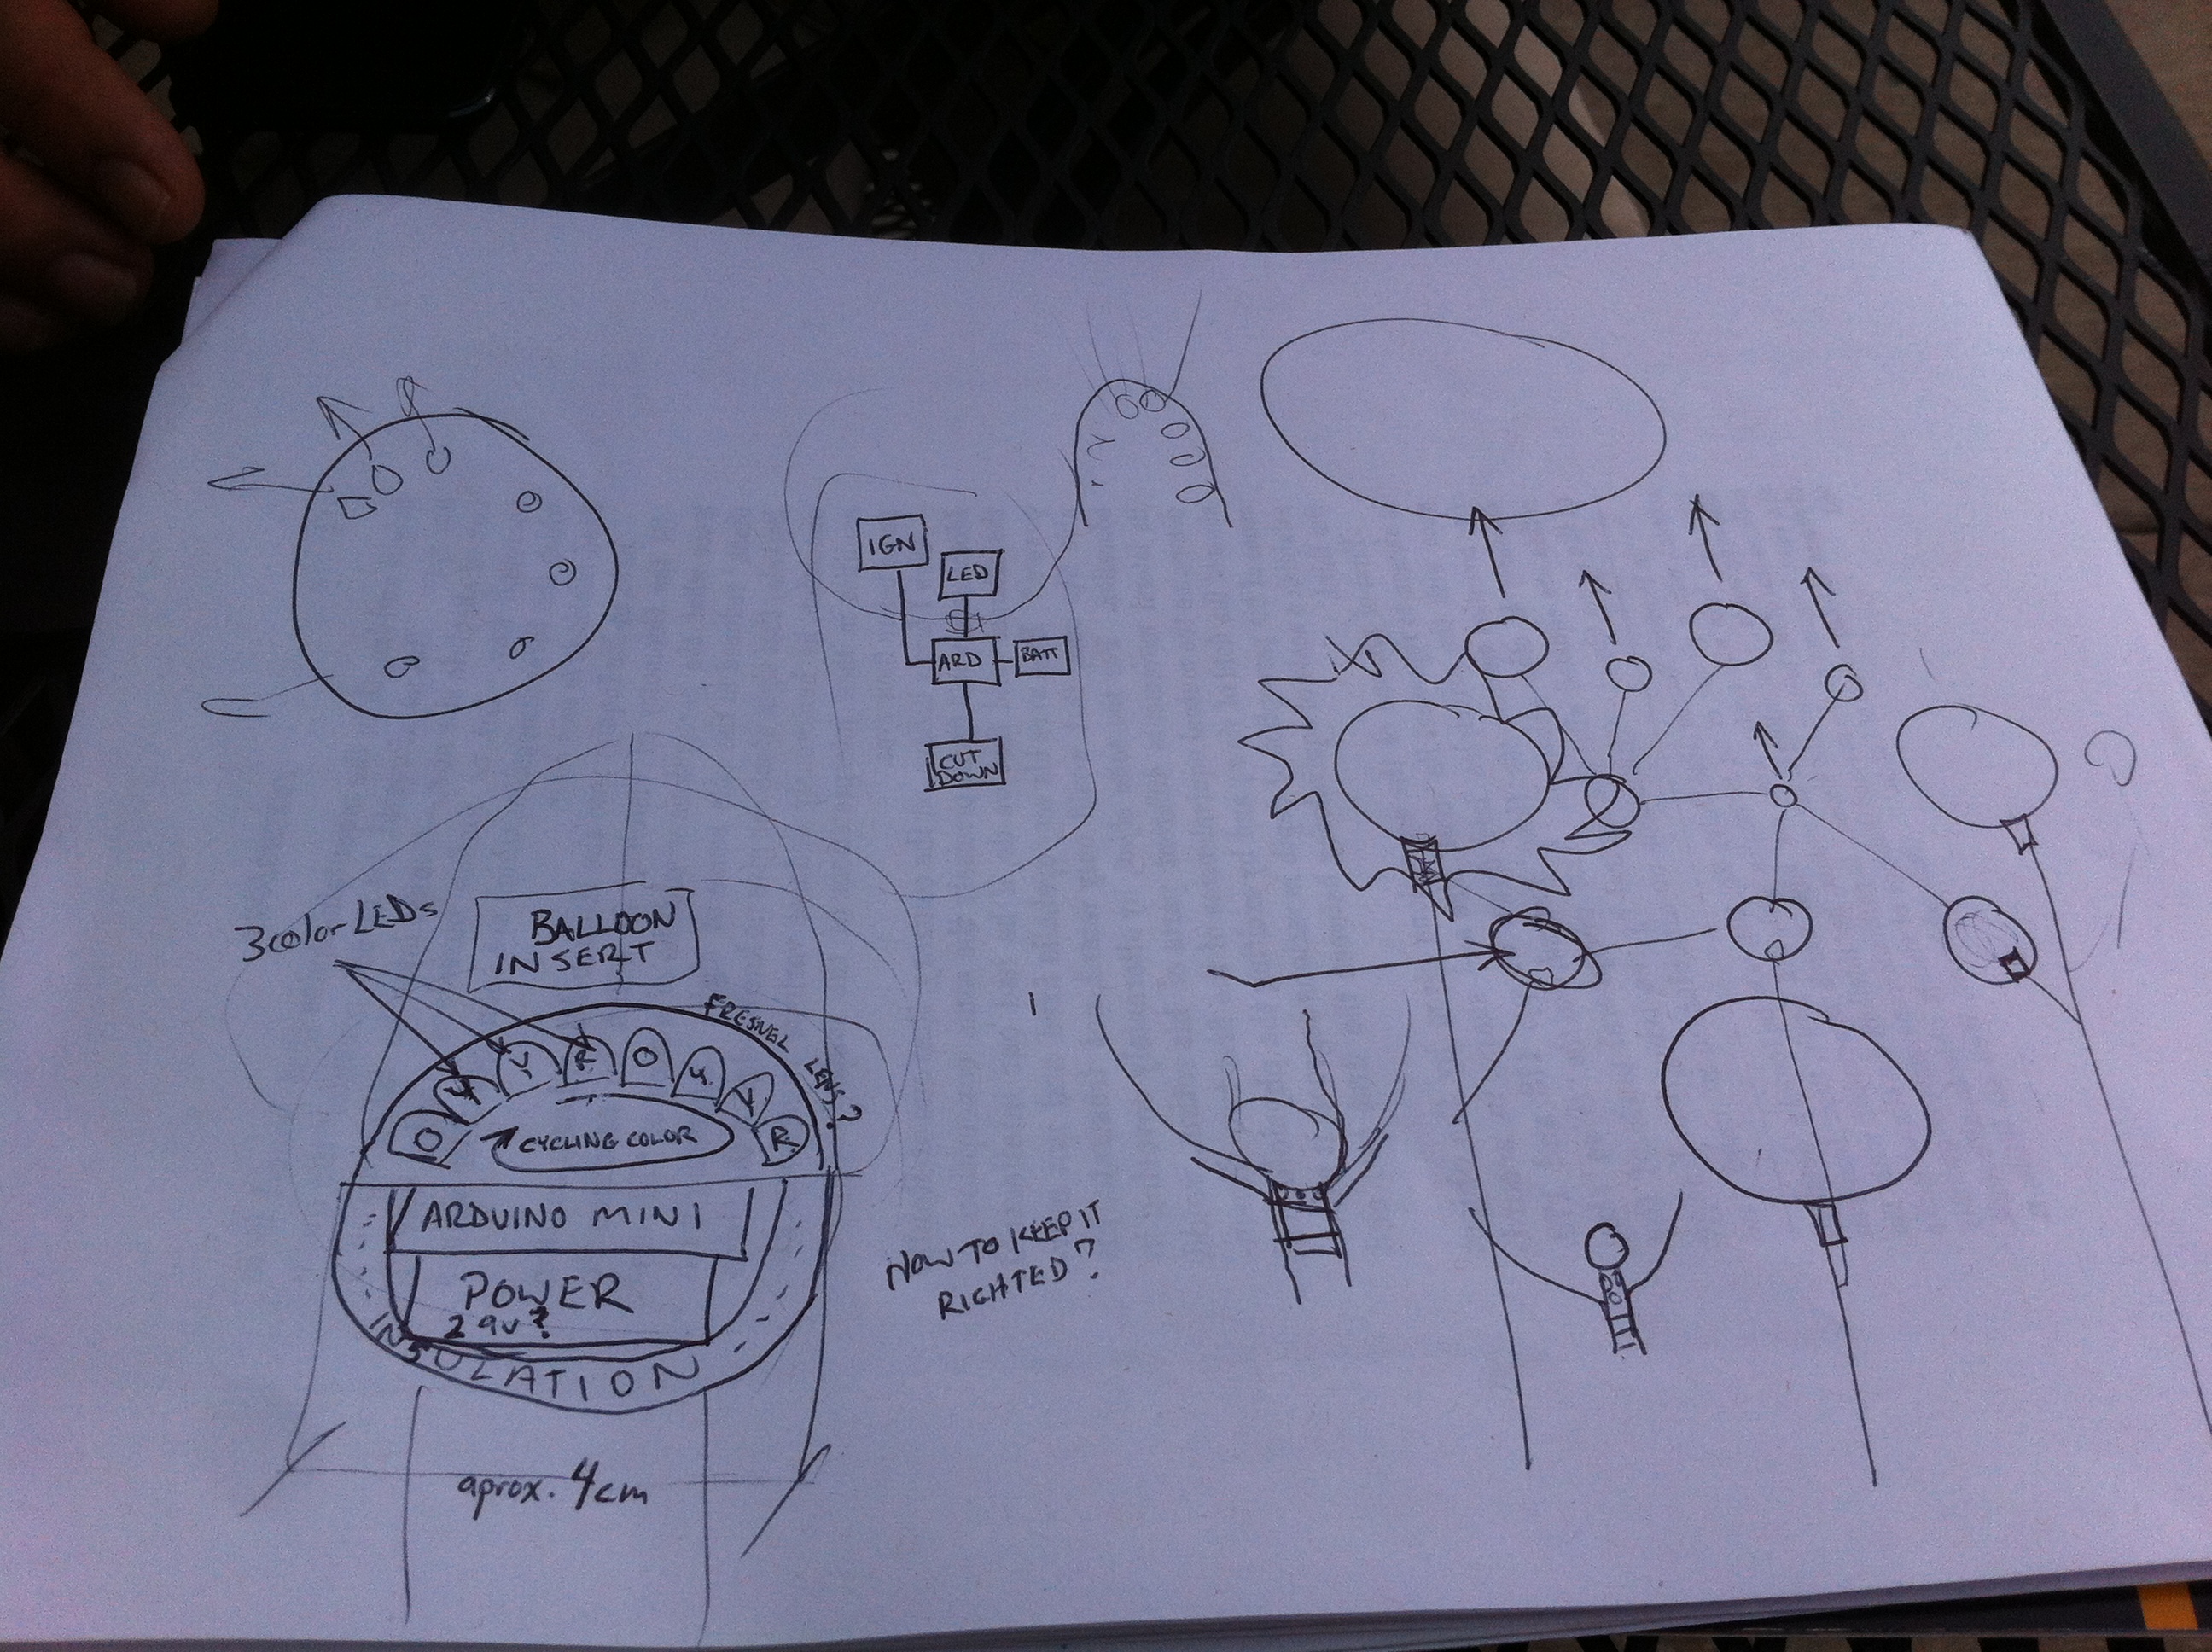 IGN
LED
ARD
BATT
CUT
DOWN
3color LEDs
BALLOON
INSERT
FRESNEL LENS?
O
Y
R
O
Y
R
CYCLING COLOR
ARDUINO MINI
POWER
2 9V?
INSULATION
aprox. 4cm
HOW TO KEEP IT
RIGHTED?